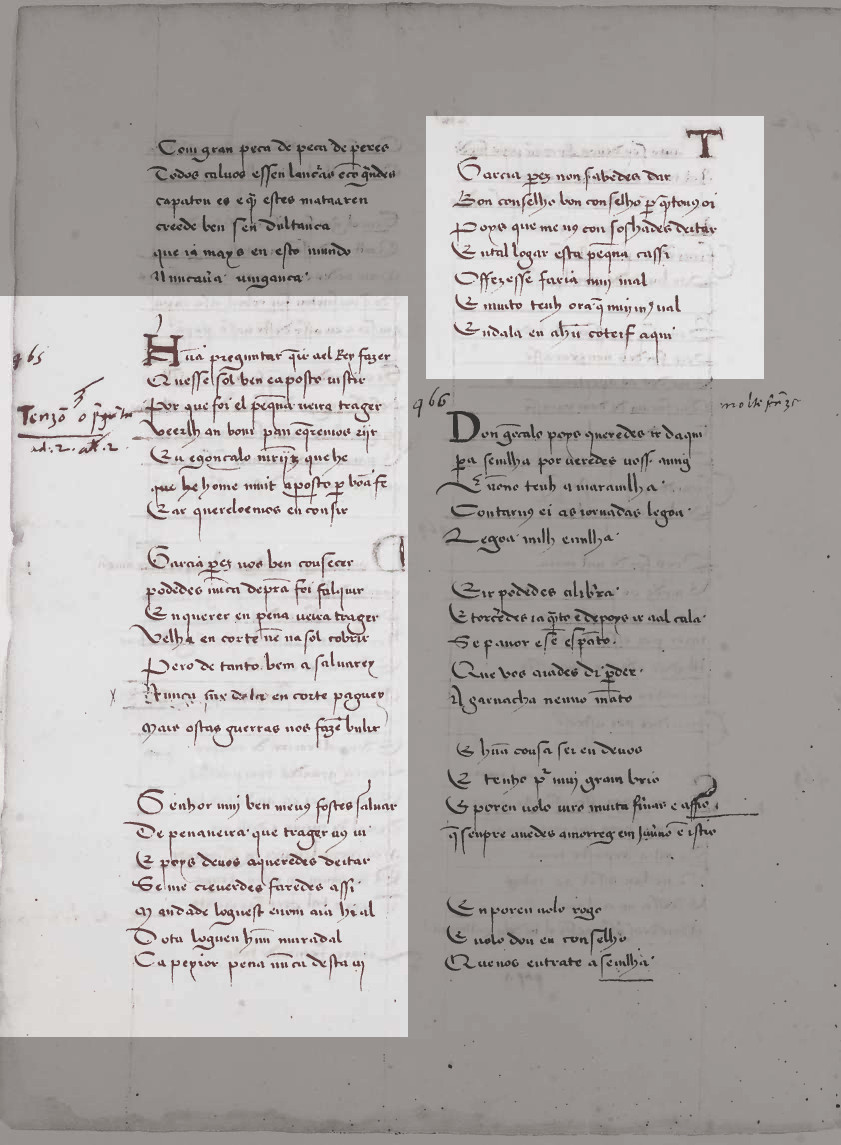 Com gran peca de peca de peres
Todos caluos essen lancas e cõ grãdes
capatou es e q̃ estes mataaren
creede ben sen dultanca
que ia mays en esto mundo
Nuncau'a uinganca
465
Hũa preguntar q̃ir ael Rey fazer
Quesse sol ben eaposto uistir
Por que foi el peq̃na ueira trager
Veelh an bom pan e q̃remos ijr
Eu egoncalo mrijz que he
que he home muit aposto p bõa fe
E ar quereloemos en cousir
Tenzõ
Garcia perez uos ben cousecer
podedes nũca depra foi falqiur
En querer en pena ueira trager
Velha en corte nẽ na sol cobrir
Pero de tanto bem a saluarey
Nunca en corte paguey
Mais ostas guerras nos fazẽ bulir
Senhor mij ben meuos fostes saluar
De penaueira que trager uij ui
E poys deuos a queredes deitar
Se me creuerdes faredes assi
Mandade loguest euom aia hi al
Deita loguen hũu muradal
Ca peyior pena nũca desta ui
T
Garcia perez non sabedes dar
Bon conselho bon conselho p quãtouos oi
Poys que me uos consoshades deitar
En tal logar esta peq̃na ca ssi
O ffezesse faria muj mal
E muito tenh ora q̃ muj inos ual
En dala en ahũu coteif aqui
466
molte
Don gõcalo poys queredes ir daqui
pa seuilha por ueredes uoss amig
E nono tenh a marauilha
Contaruos ei as iornadas legoa
Legoa milh e milha
E ir podedes a lib'ra
E torc'edes ia quãto e depoys ir a al cala
Se pauor e sẽ espãto
Que uos aiades di pder
A garnacha nenno mãto
E hũa cousa sei eu deuos
E tenho pr muj gram brio
E poren uolo iuro muita fiuas e affio
q̃ senpre auedes a morreg em iuũno ẽ istio
En poren uolo rogo
E uolo dou en conselho
Que uos entrate a seuilha